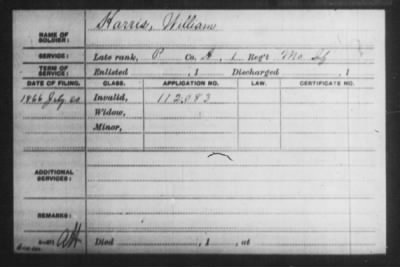 Harris, William
NAME OF SOLDIER:
SERVICE: Late rank, P Co. A, 1 Reg't Mo. Lt
TERM OF SERVICE: Enlisted , 1 Discharged , 1
DATE OF FILING. CLASS. APPLICATION NO. LAW. CERTIFICATE NO.
1866 July Invalid, 112.083
Widow,
Minor,
ADDITIONAL SERVICES:
REMARKS:
Died , 1 , at